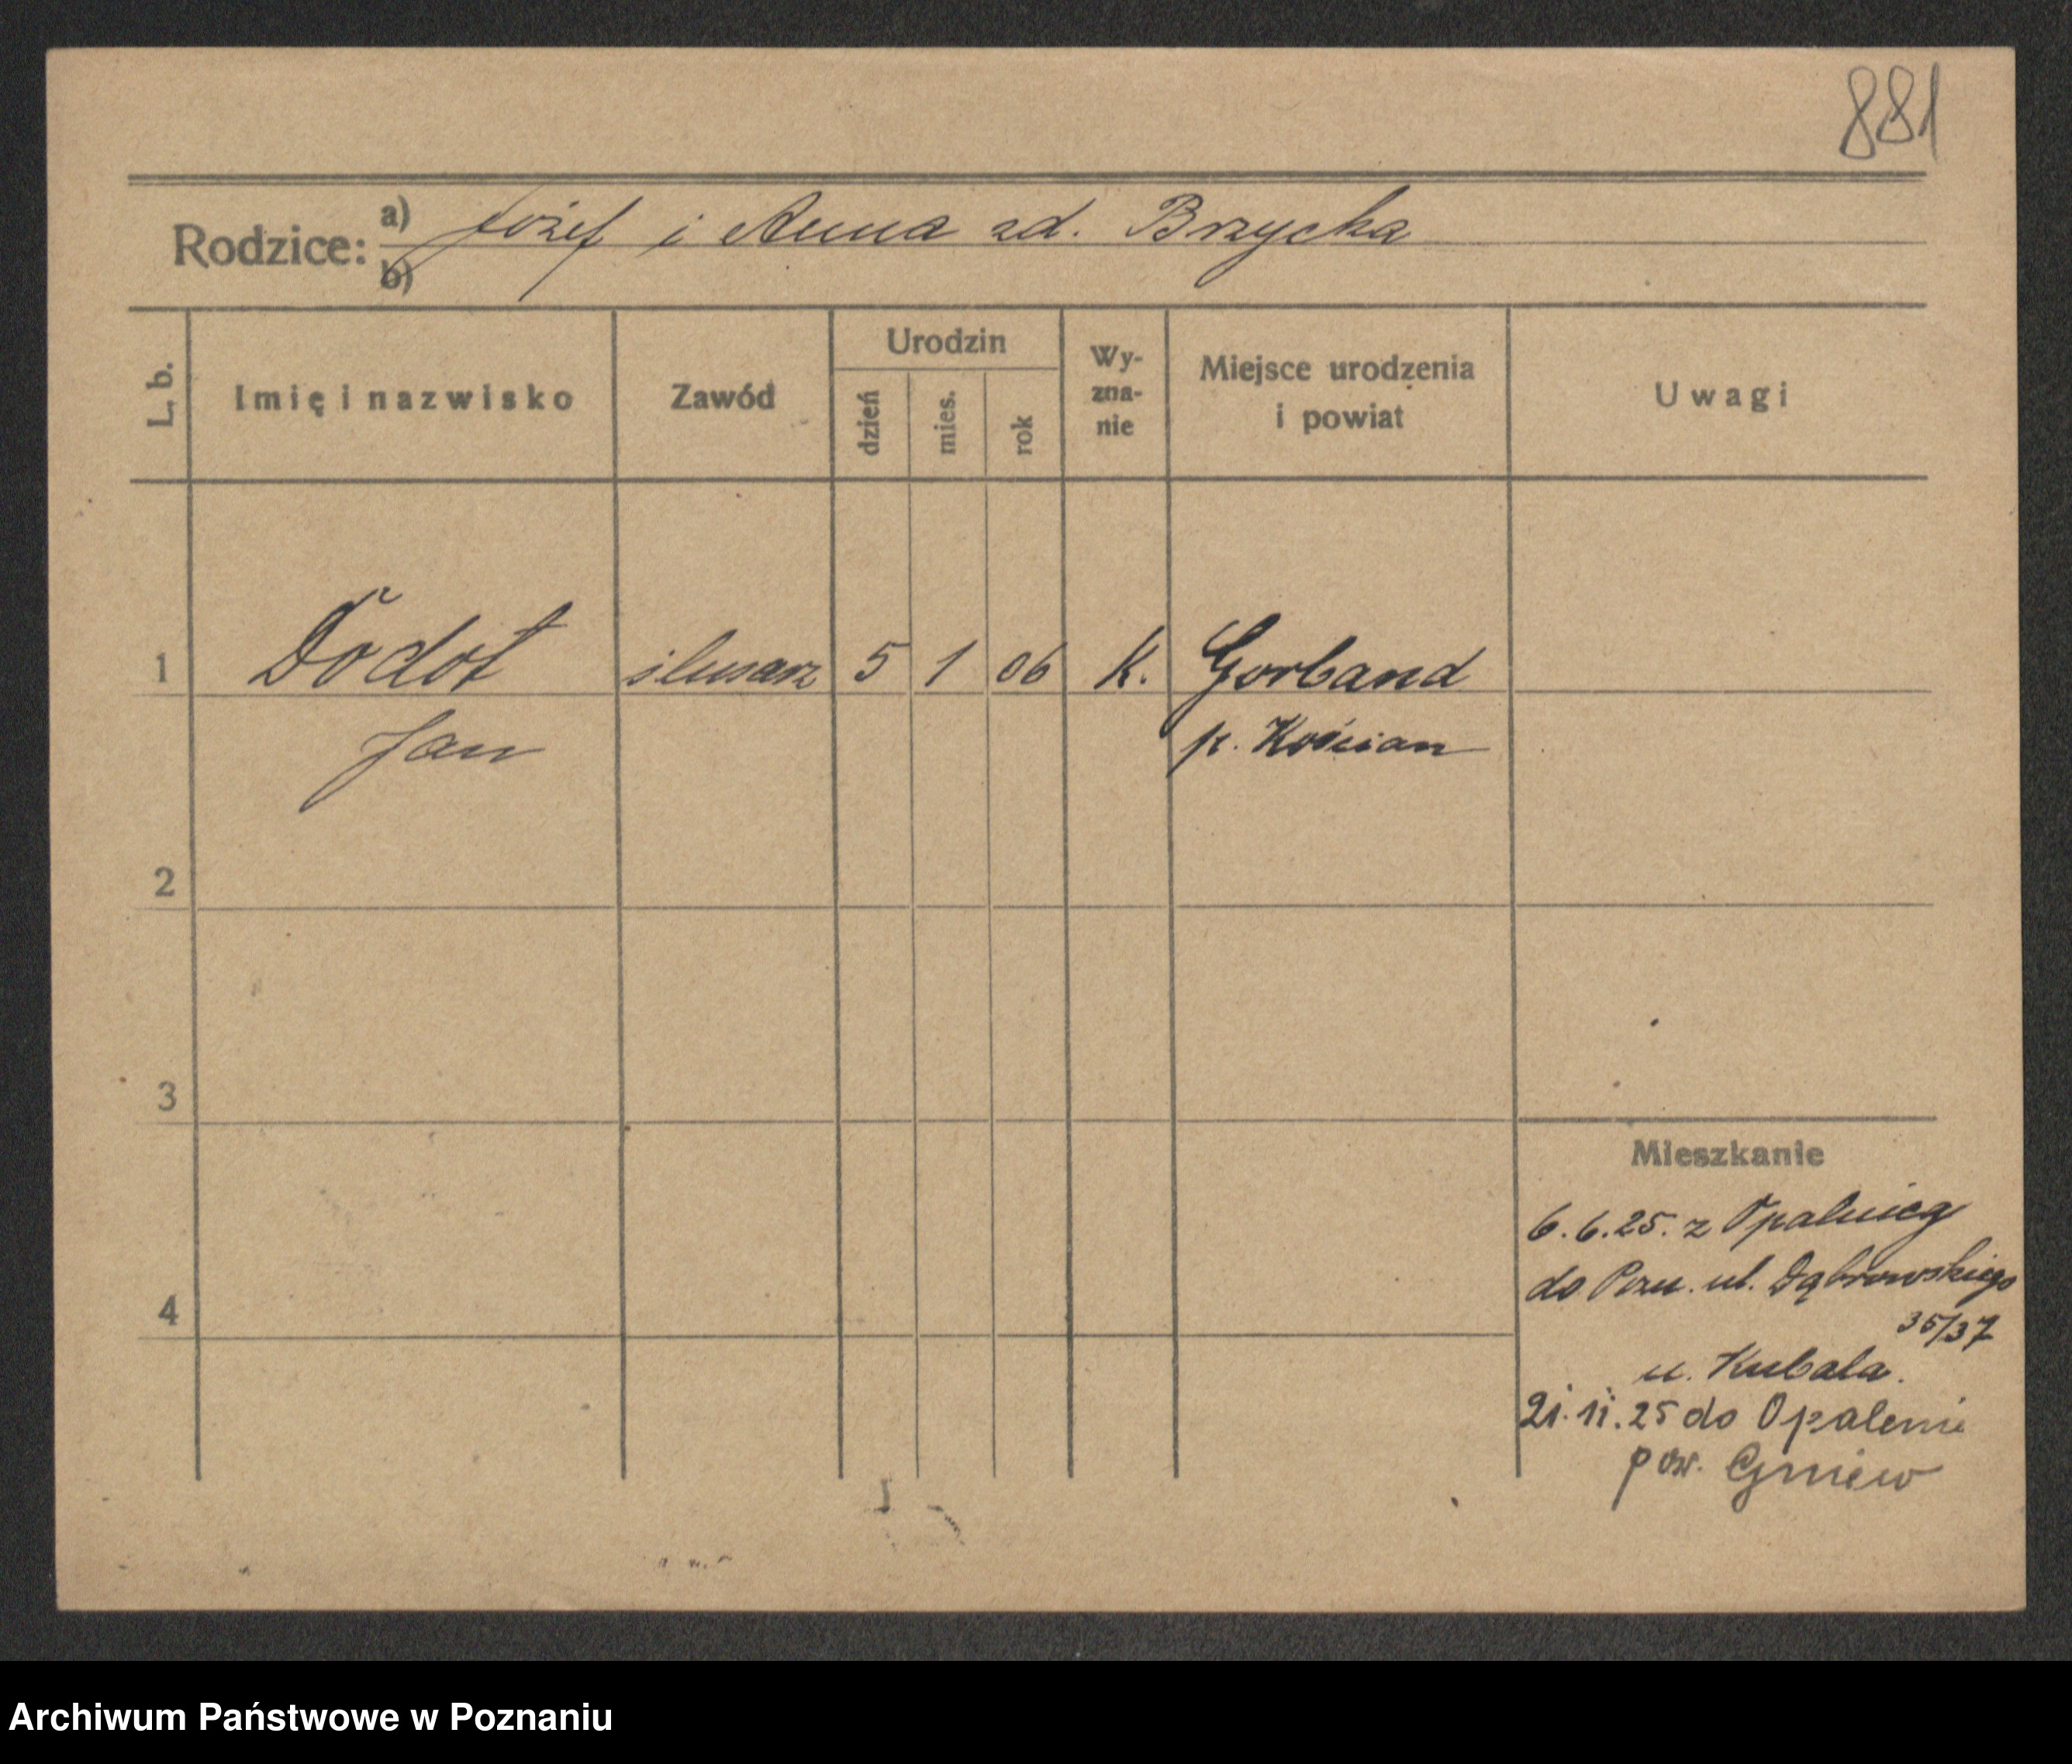 881
Rodzice: a) Józef i Anna zd. Brzycka
b)
L. b.
Imię i nazwisko
Zawód
Urodzin
dzień
mies.
rok
Wy-
zna-
nie
Miejsce urodzenia
i powiat
Uwagi
1 Dodot ślusarz 5 1 06 K. Gorband
Jan p. Kościan
2
3
4
Mieszkanie
6.6.25. z Opalnicy
do Pozn. ul. Dąbrowskiego
35/37
u. Kubala.
21.11.25 do Opaleni
pow. Gniew
Archiwum Państwowe w Poznaniu